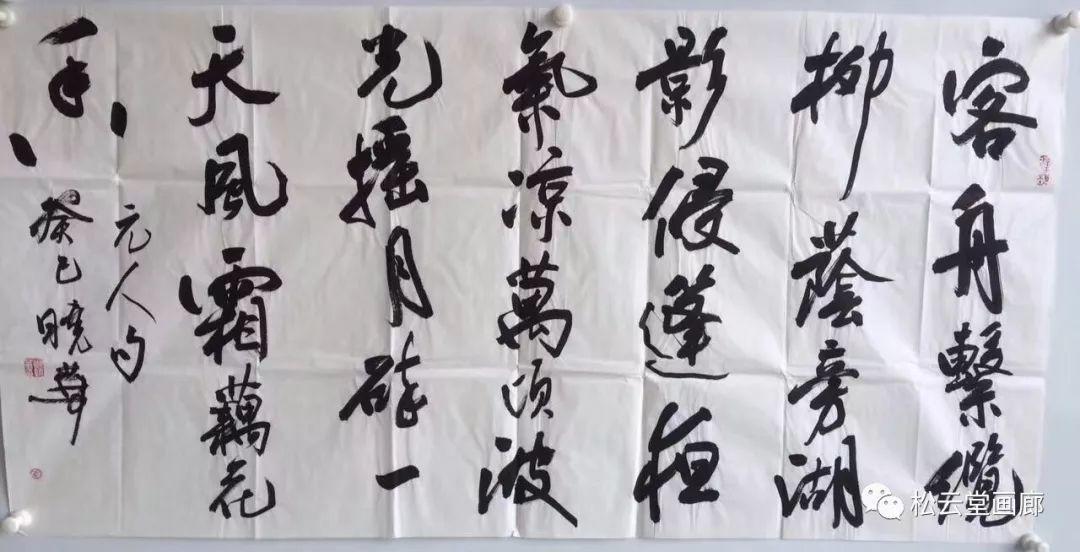 客舟繫纜
柳蔭旁湖
影侵蓬夜
氣凉萬頃波
光摇月碎一
天風霜藕花
香
元人句
癸巳曉
松云堂画廊